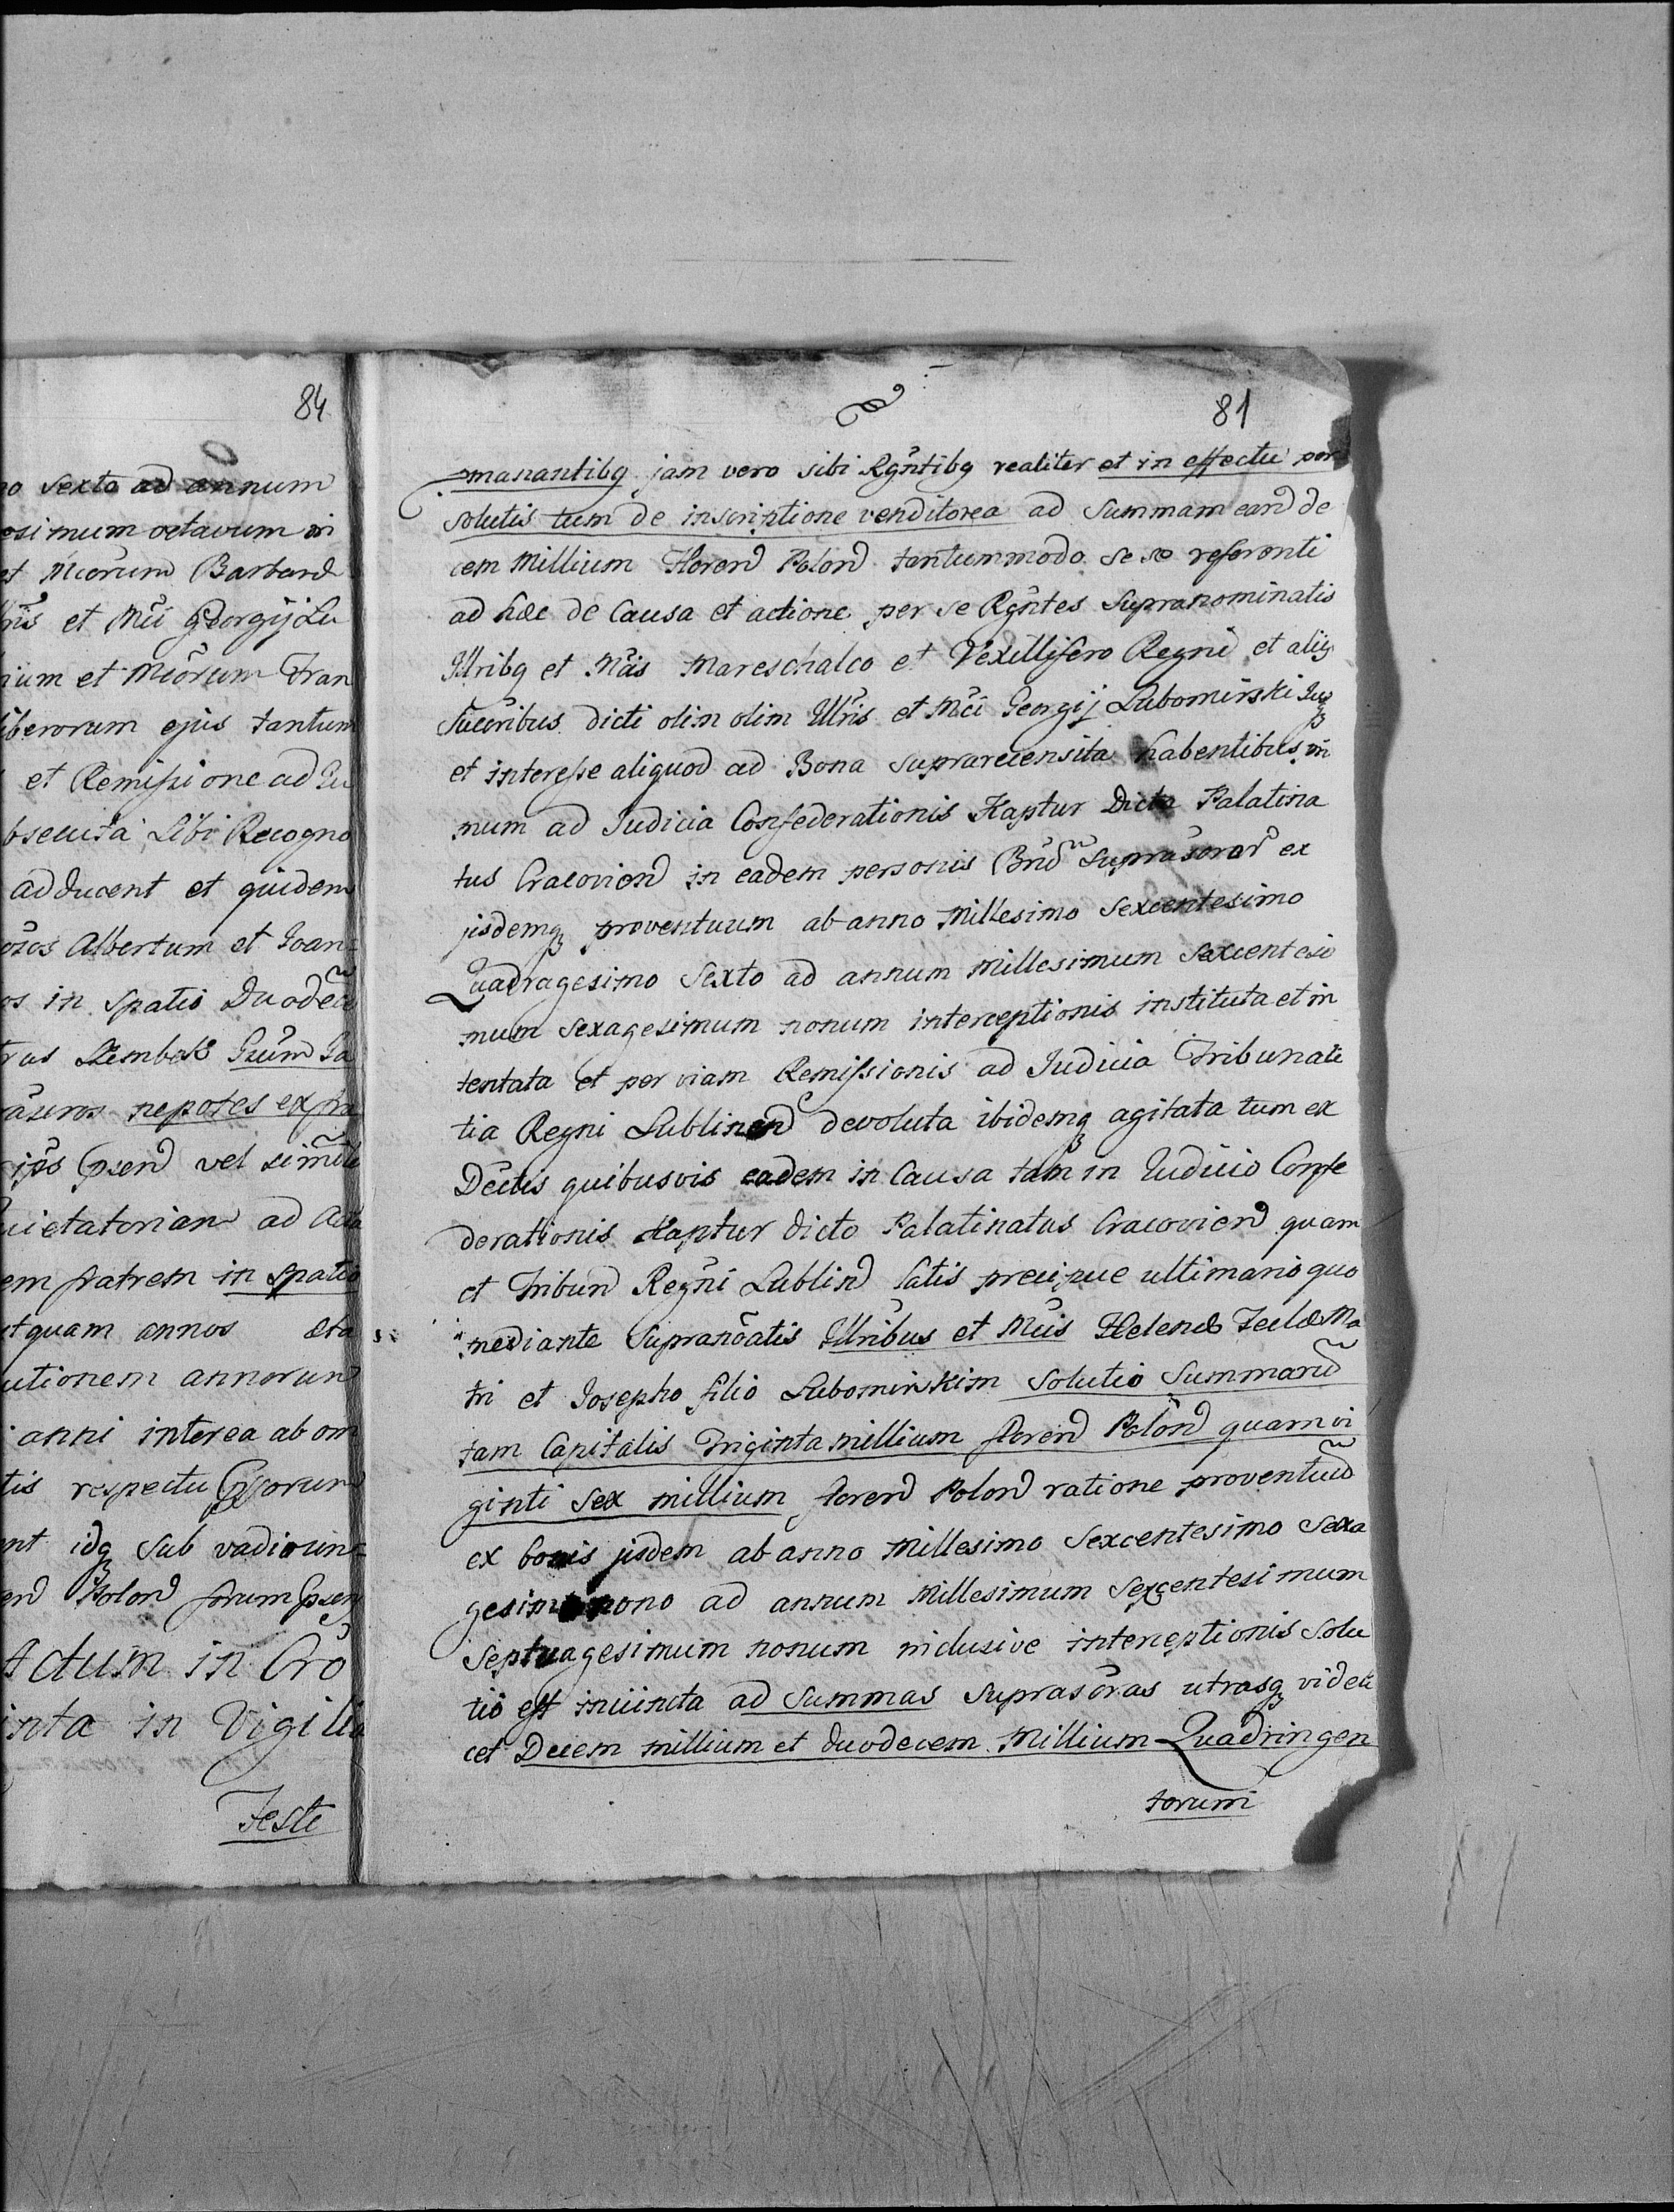 84
no Sexto ad annum
esimum octavum in
et Mcorum Barbaræ
ris et Mci Georgij Lu
rium et Mcorum Fran
iberorum ejus tantum
et Remissione ad Ju
bsecuta Libi Recogno
adducent et quidem
Albertum et Joan=
os in Spatio Duodeci
rus
nepotes ex fra
vel simili
uietatorian ad Acta
em fratrem in spatio
tquam annos
utionem annorum
anni interea ab om
tis respectu
nt idq sub vadio
Polon forum
Actum in Cro
inta in Vigilia
Teste
81
manantibq jam vero sibi Rgntibq realiter et in effectu per
solutis tum de inscriptione venditorea ad Summam eand de
cem Millium Floren Polon tantummodo se se referenti
ad hæc de Causa et actione per se Rgntes Supranominatis
Illribq et Mcis Mareschalco et Vexillifero Regni et alijs
Succribus dicti olim olim Illris et Mci Georgij Lubomirski Jusq
et interesse aliquod ad Bona suprarecensita habentibus in
num ad Judicia Confederationis Kaptur Dicta Palatina
tus Cracovien in eadem personis Bnd Suprasorar ex
jisdemq proventuum ab anno Millesimo Sexcentesimo
Quadragesimo Sexto ad annum Millesimum Sexcentesi
mum Sexagesimum nonum interceptionis instituta et in
tentata et per viam Remissionis ad Judicia Tribunali
tia Regni Lublinen devoluta ibidemq agitata tum ex
Dectis quibusvis eadem in Causa tam in Judicio Confe
derationis Kaptur dicto Palatinatus Cracovien quam
et Tribun Regni Lublin latis precipue ultimario quo
mediante Supranoatis Illribus et Mcis Helenæ Teclæ Ma
tri et Josepho filio Lubomirskim solutio Summaru
tam Capitalis Triginta millium floren Polon quam vi
ginti Sex millium floren Polon ratione proventuu
ex bonis jisdem ab anno Millesimo Sexcentesimo Sexa
gesimo nono ad annum Millesimum Sexcentesimum
Septuagesimum nonum inclusive interceptionis Solu
tio est iniuncta ad Summas Suprasoras utrasq videli
cet Decem millium et duodecem Millium Quadringen
torum